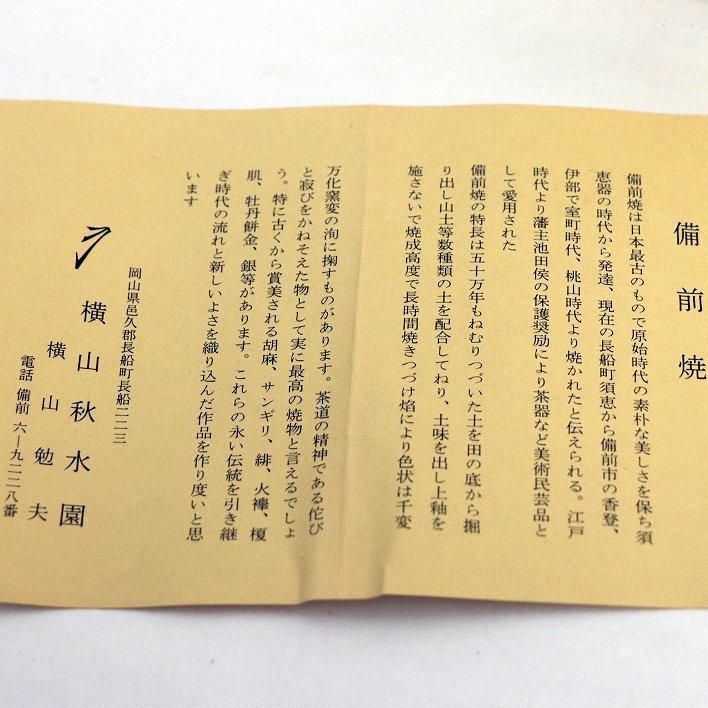 備前焼
備前焼は日本最古のもので原始時代の素朴な美しさを保ち須
恵器の時代から発達、現在の長船町須恵から備前市の香登、
伊部で室町時代、桃山時代より焼かれたと伝えられる。江戸
時代より藩主池田侯の保護奨励により茶器など美術民芸品と
して愛用された
備前焼の特長は五十万年もねむりつづいた土を田の底から掘
り出し山土等数種類の土を配合してねり、土味を出し上釉を
施さないで焼成高度で長時間焼きつづけ焰により色状は千変
万化窯変の洵に掬すものがあります。茶道の精神である侘び
と寂びをかねそえた物として実に最高の焼物と言えるでしょ
う。特に古くから賞美される胡麻、サンギリ、緋、火襷、榎
肌、牡丹餅金、銀等があります。これらの永い伝統を引き継
ぎ時代の流れと新しいよさを織り込んだ作品を作り度いと思
います
岡山県邑久郡長船町長船二二三
横山秋水園
横山勉夫
電話 備前 六―九二二八番